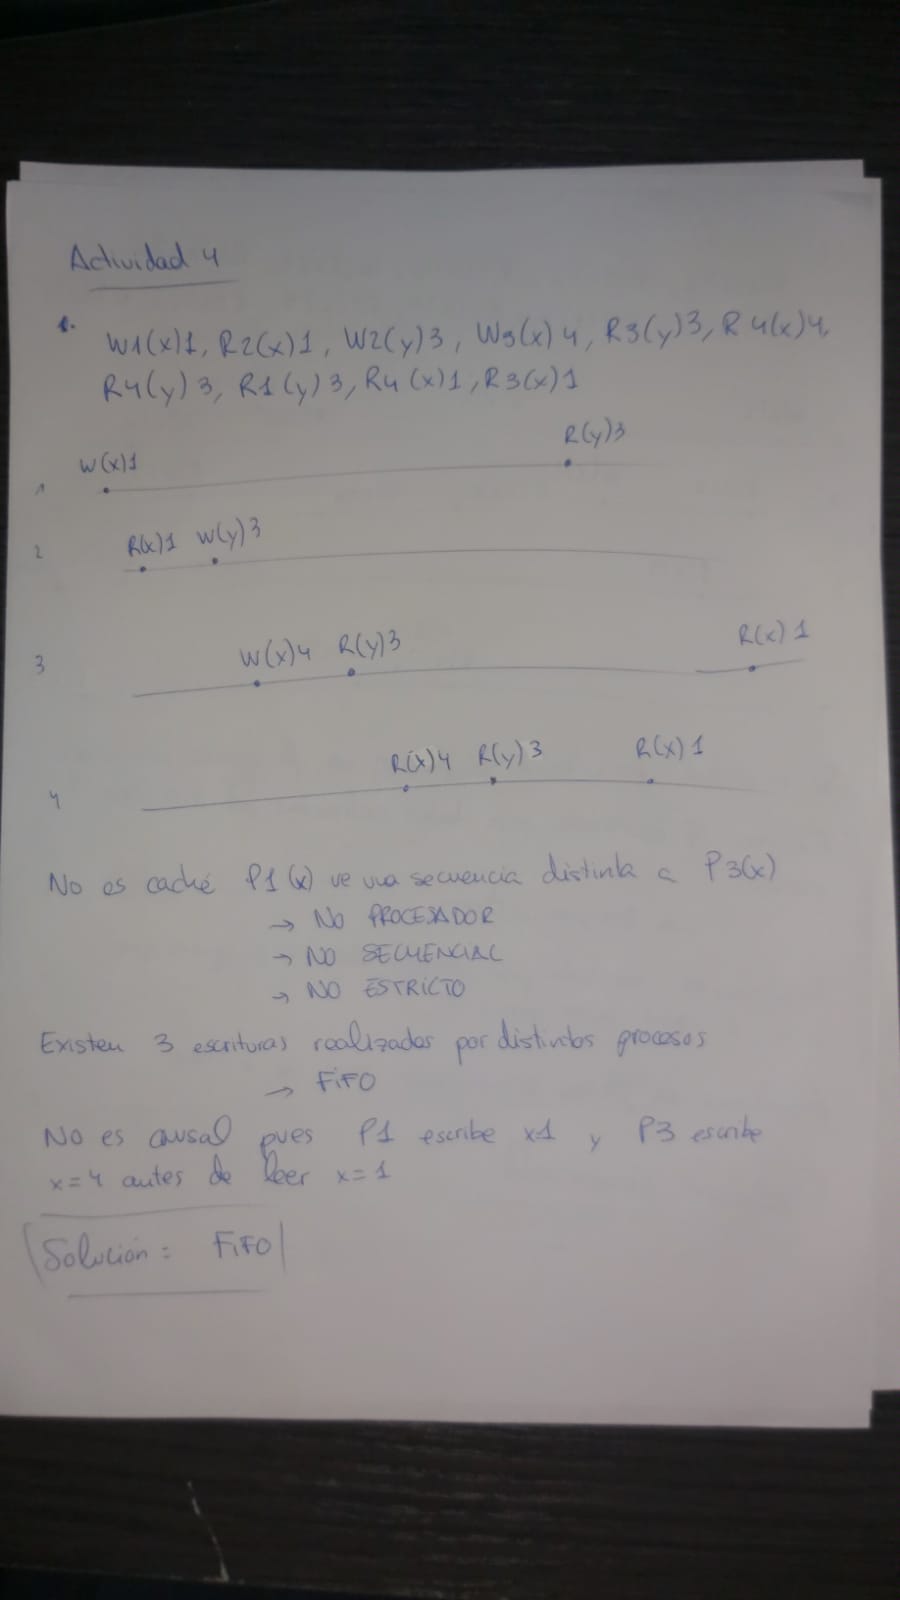 Actividad 4
1. W1(x)1, R2(x)1, W2(y)3, W3(x)4, R3(y)3, R4(x)4,
R4(y)3, R1(y)3, R4(x)1, R3(x)1
1 W(x)1 R(y)3
2 R(x)1 W(y)3
3 W(x)4 R(y)3 R(x)1
4 R(x)4 R(y)3 R(x)1
No es caché P1(x) ve una secuencia distinta a P3(x)
→ NO PROCESADOR
→ NO SECUENCIAL
→ NO ESTRICTO
Existen 3 escrituras realizadas por distintos procesos
→ FiFO
No es causal pues P1 escribe x1 y P3 escribe
x=4 antes de leer x=1
Solución = FiFO